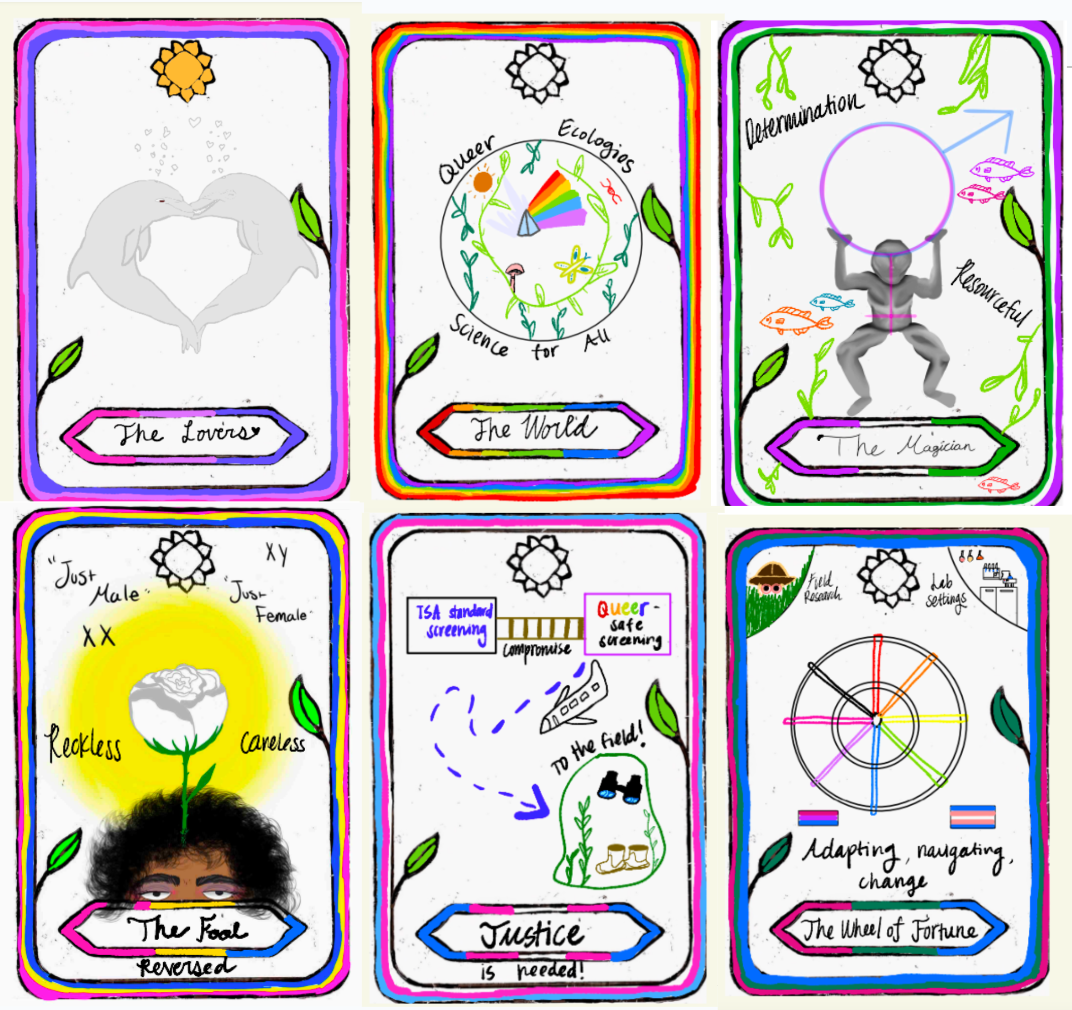 The Lovers
Queer Ecologies
Science for All
The World
Determination
Resourceful
The Magician
"Just Male"
XY
"Just Female"
XX
Reckless
Careless
The Fool
Reversed
TSA standard
screening
Queer-
safe
screening
compromise
To the field!
Justice
is needed!
Field
Research
Lab
Settings
Adapting, navigating,
change
The Wheel of Fortune